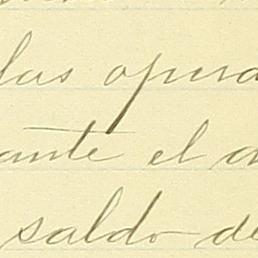 las opera
ante el d
saldo de